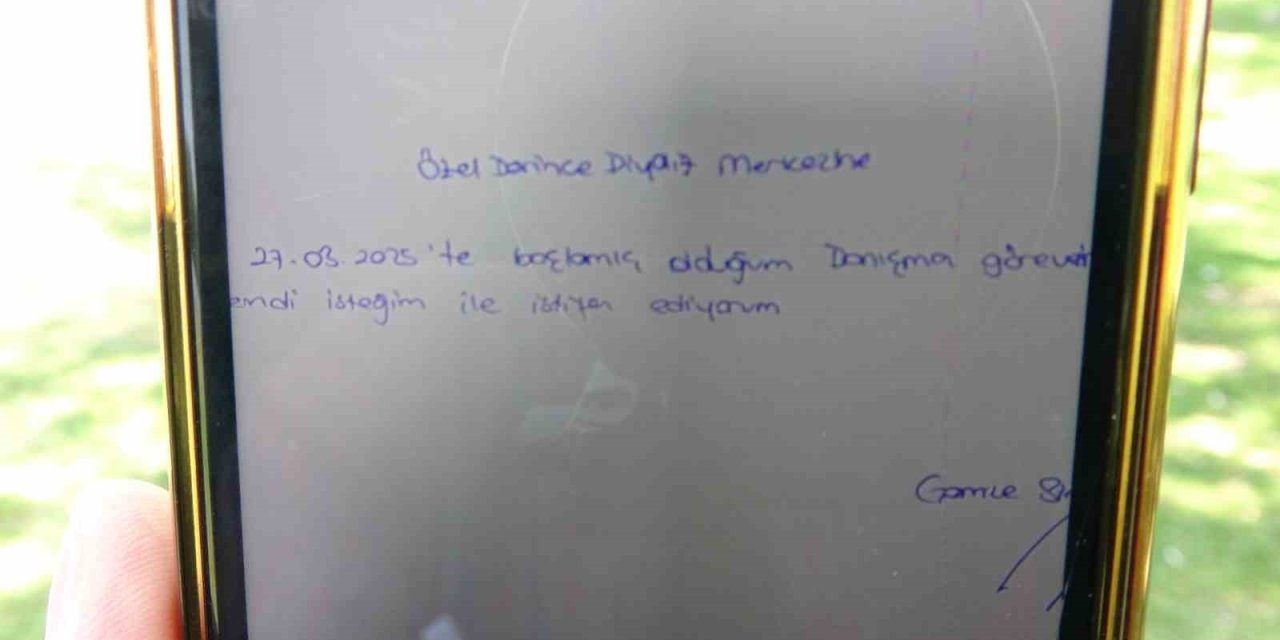 Özel Darince Diyaliz Merkezine
27.03.2025'te başlamış olduğum Danışma görev
endi isteğim ile istifa ediyorum
Gamze